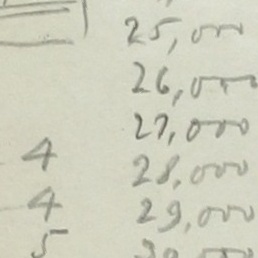 25,000
26,000
27,000
4 28,000
4 29,000
5 30,000